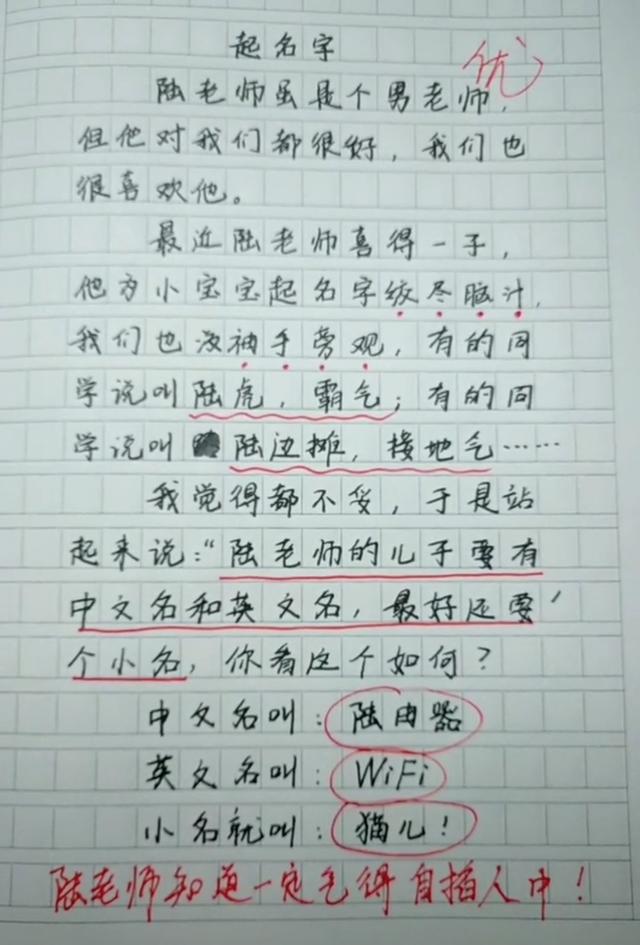 起名字
优
陆老师虽是个男老师，
但他对我们都很好，我们也
很喜欢他。
最近陆老师喜得一子，
他为小宝宝起名字绞尽脑汁，
我们也没袖手旁观，有的同
学说叫陆虎，霸气；有的同
学说叫陆边摊，接地气……
我觉得都不妥，于是站
起来说：“陆老师的儿子要有
中文名和英文名，最好还要
个小名，你看这个如何？
中文名叫：陆由器
英文名叫：WiFi
小名就叫：猫儿！
陆老师知道一定气得自掐人中！